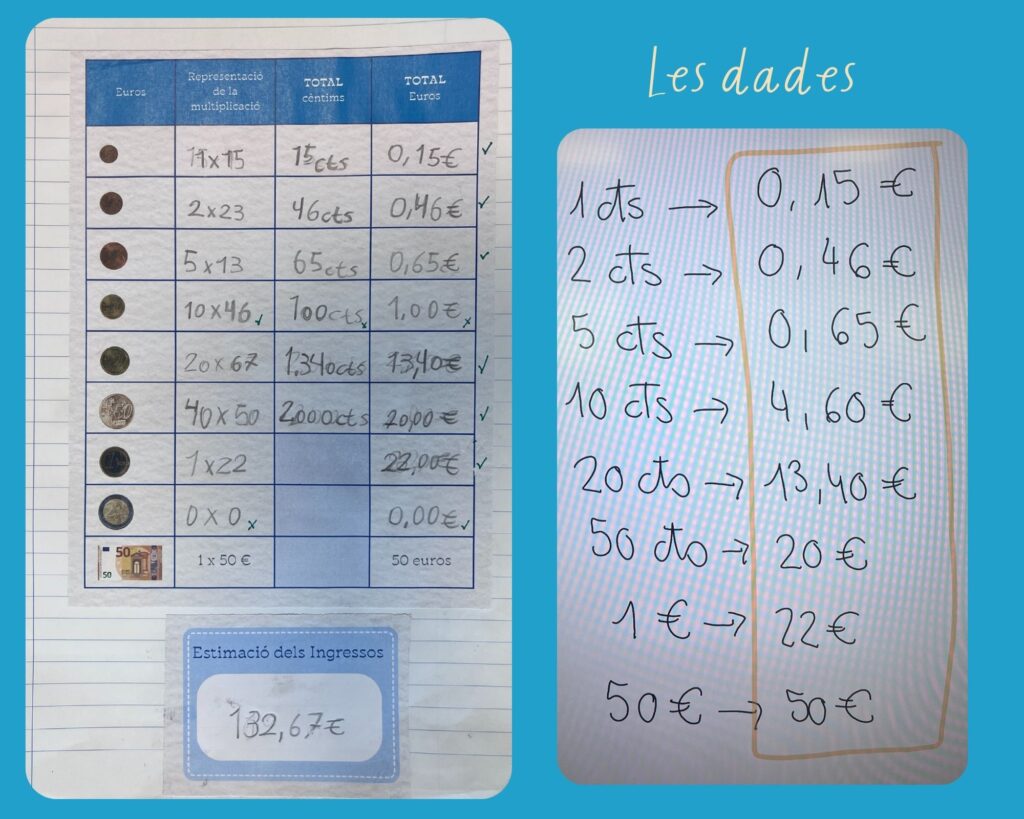 Les dades
Euros
Representació
de la
multiplicació
TOTAL
cèntims
TOTAL
Euros
15cts 0,15€ ✓
2x23 46cts 0,46€ ✓
5x13 65cts 0,65€ ✓
10x46 ✓ 100cts x 1,00€ x
20x67 1.340cts 13,40€ ✓
40x50 2000cts 20,00€ ✓
1x22 22,00€ ✓
0x0 x 0,00€ ✓
50 50 1 x 50 € 50 euros
Estimació dels Ingressos
132,67€
1 cts → 0,15€
2 cts → 0,46€
5 cts → 0,65€
10 cts → 4,60€
20 cts → 13,40€
50 cts → 20€
1€ → 22€
50€ → 50€